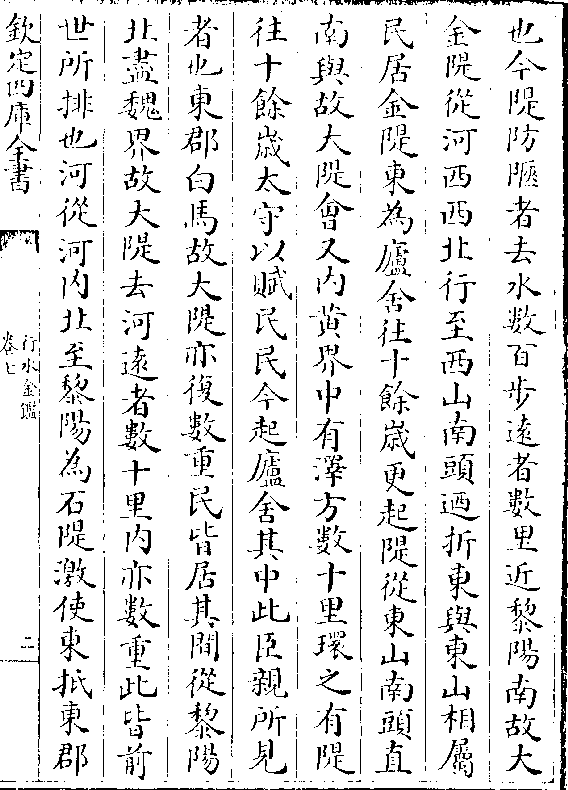 也今隄防陿者去水數百步遠者數里近黎陽南故大
金隄從河西西北行至西山南頭迺折東與東山相屬
民居金隄東為廬舍往十餘歲更起隄從東山南頭直
南與故大隄會又内黄界中有澤方數十里環之有隄
往十餘歲太守以賦民民今起廬舍其中此臣親所見
者也東郡白馬故大隄亦復數重民皆居其間從黎陽
北盡魏界故大隄去河遠者數十里内亦數重此皆前
世所排也河從河内北至黎陽為石隄激使東抵東郡
欽定四庫全書
行水金鑑
卷七
二